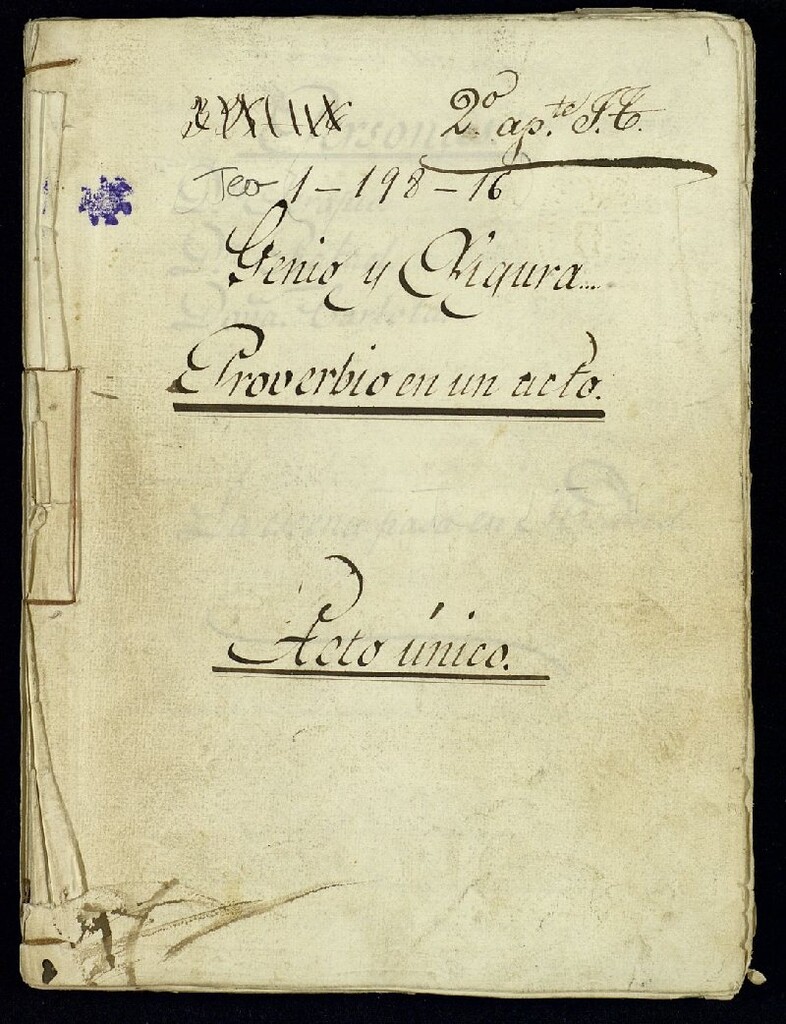 1
2º ap.te J. C.
Teo 1-198-16
Genio y Figura...
Proverbio en un acto.
Acto único.